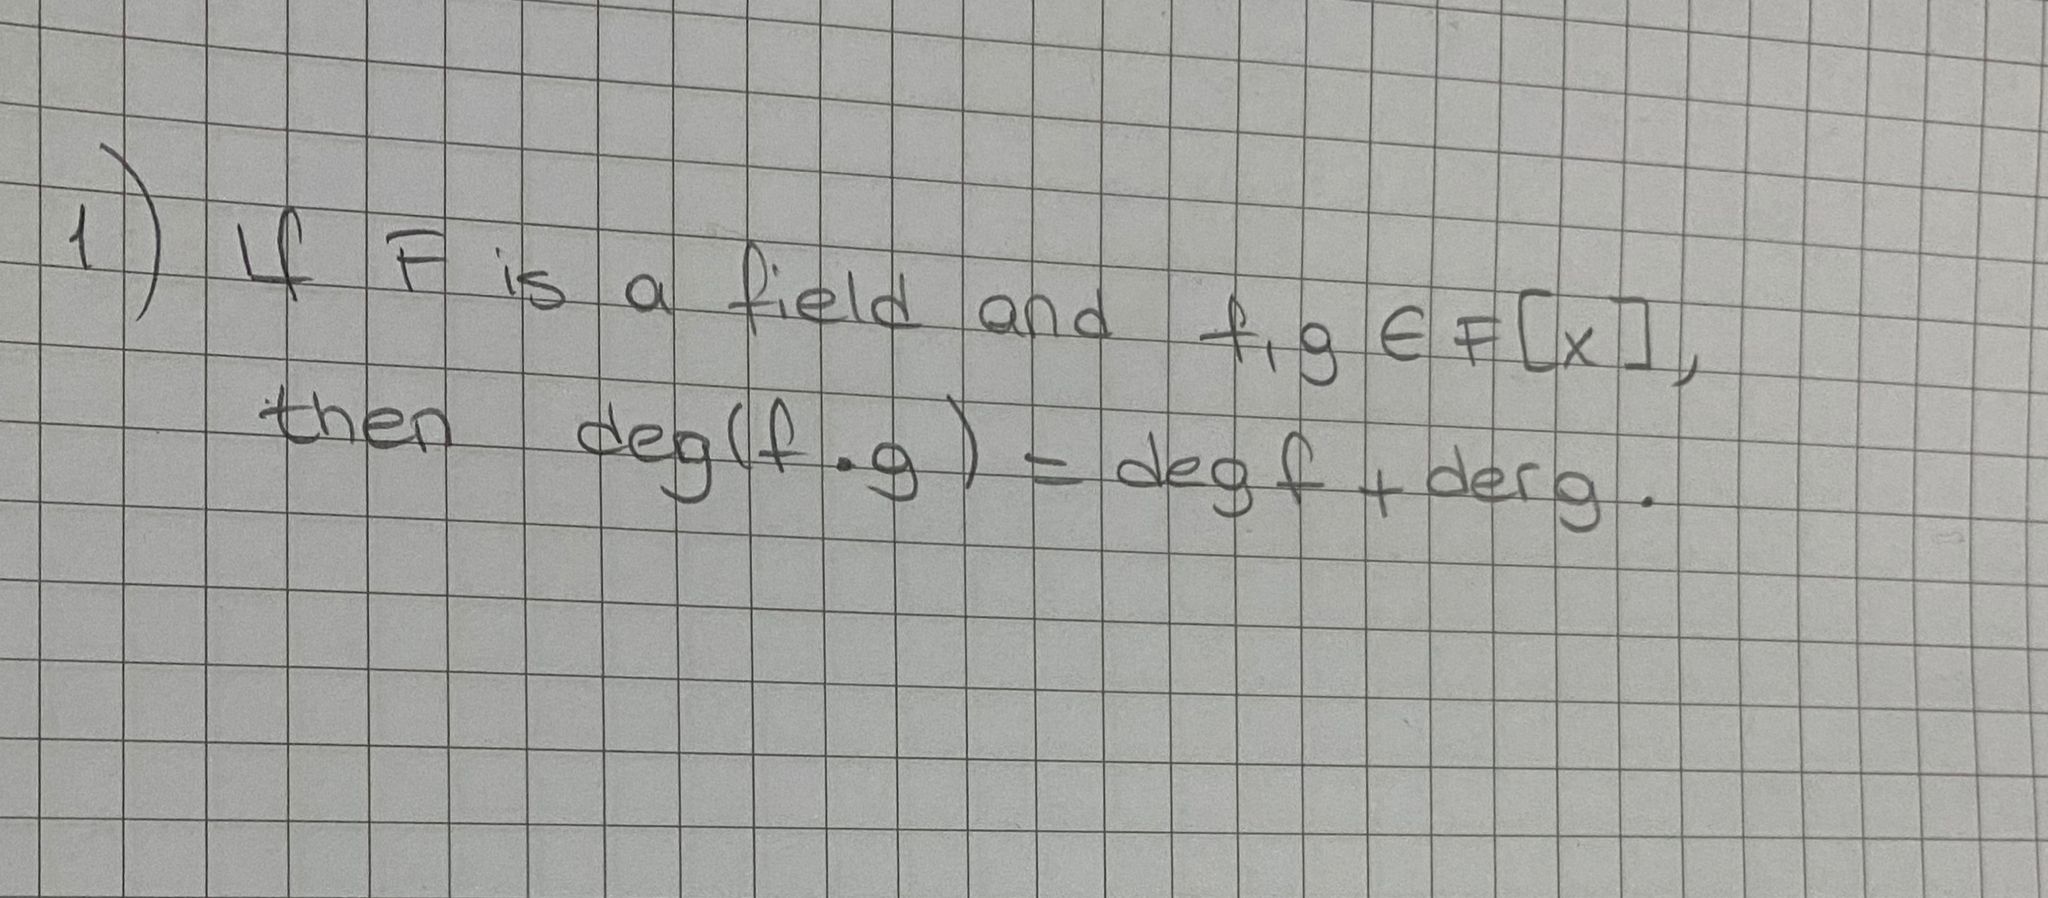 1) If F is a field and f,g ∈ F[x],
then deg(f.g) = deg f + derg.